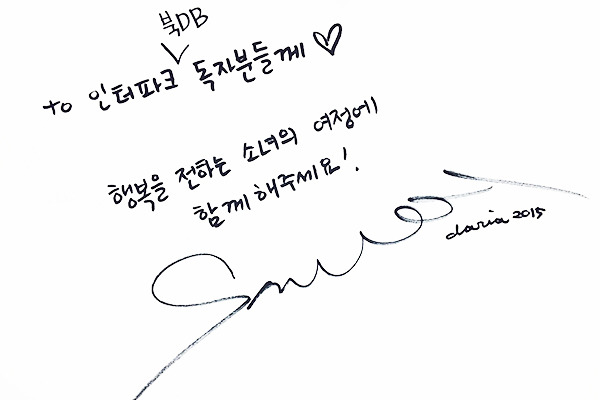 북DB
to 인터파크 독자분들께 ♡
행복을 전하는 소녀의 여정에
함께 해주세요!
daria 2015